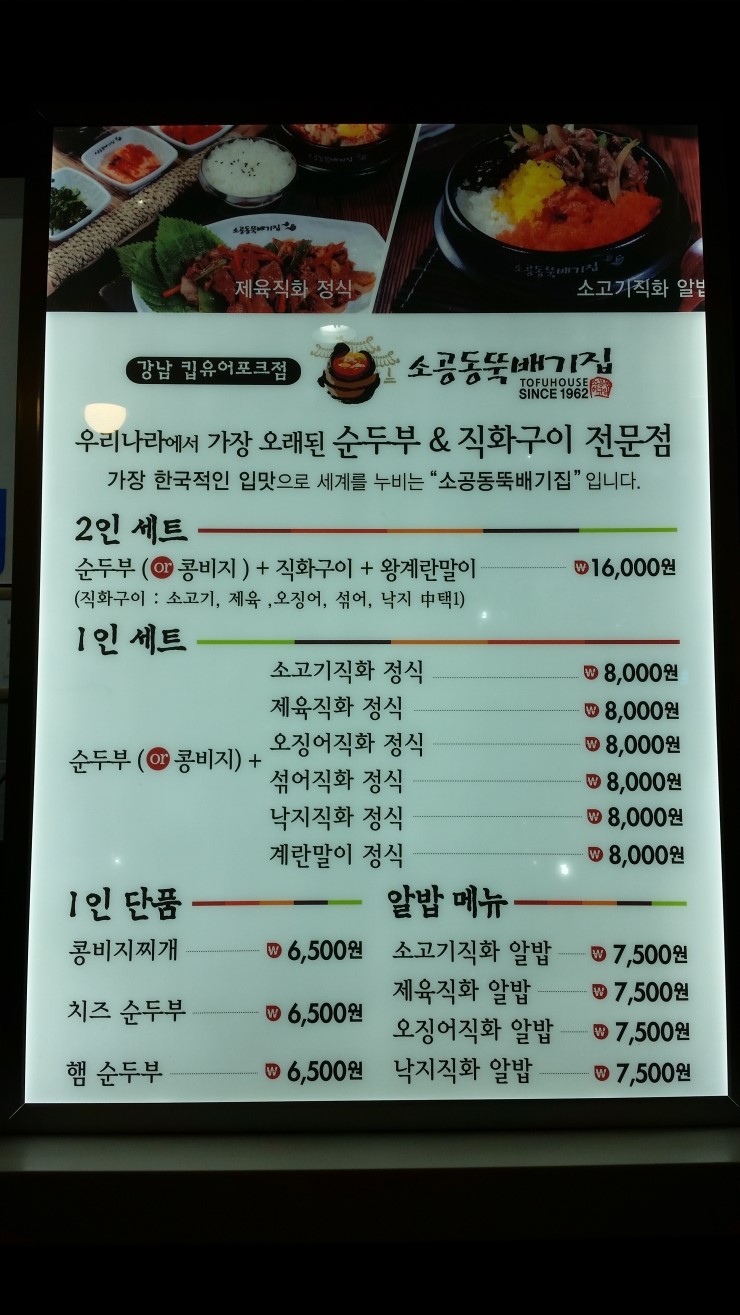 소공동뚝배기집
제육직화 정식
소공동뚝배기집
소고기직화 알밥
강남 킵유어포크점
소공동뚝배기집
TOFUHOUSE
SINCE 1962
우리나라에서 가장 오래된 순두부 & 직화구이 전문점
가장 한국적인 입맛으로 세계를 누비는 “소공동뚝배기집” 입니다.
2인 세트
순두부 (or 콩비지 ) + 직화구이 + 왕계란말이 ₩16,000원
(직화구이 : 소고기, 제육 ,오징어, 섞어, 낙지 中택1)
1인 세트
순두부 (or 콩비지) +
소고기직화 정식 ₩ 8,000원
제육직화 정식 ₩ 8,000원
오징어직화 정식 ₩ 8,000원
섞어직화 정식 ₩ 8,000원
낙지직화 정식 ₩ 8,000원
계란말이 정식 ₩ 8,000원
1인 단품
콩비지찌개 ₩ 6,500원
치즈 순두부 ₩ 6,500원
햄 순두부 ₩ 6,500원
알밥 메뉴
소고기직화 알밥 ₩ 7,500원
제육직화 알밥 ₩ 7,500원
오징어직화 알밥 ₩ 7,500원
낙지직화 알밥 ₩ 7,500원